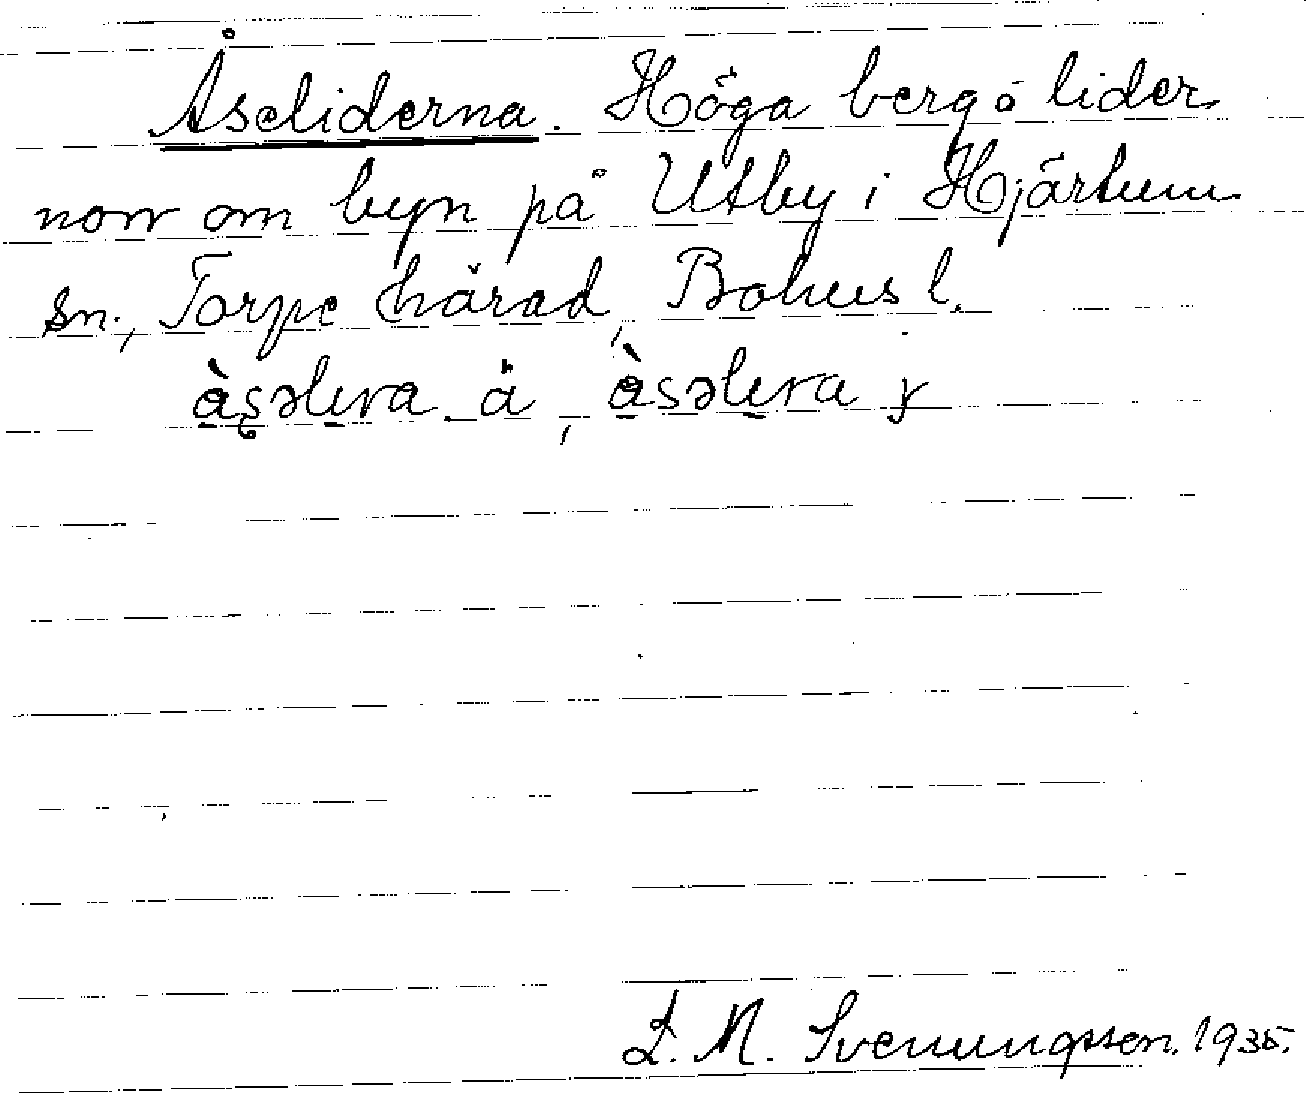 Åseliderna. Höga berg o lider
norr om byn på Utby i Hjärtum
sn., Torpe härad, Bohusl.
L. M. Svenungsson. 1935.